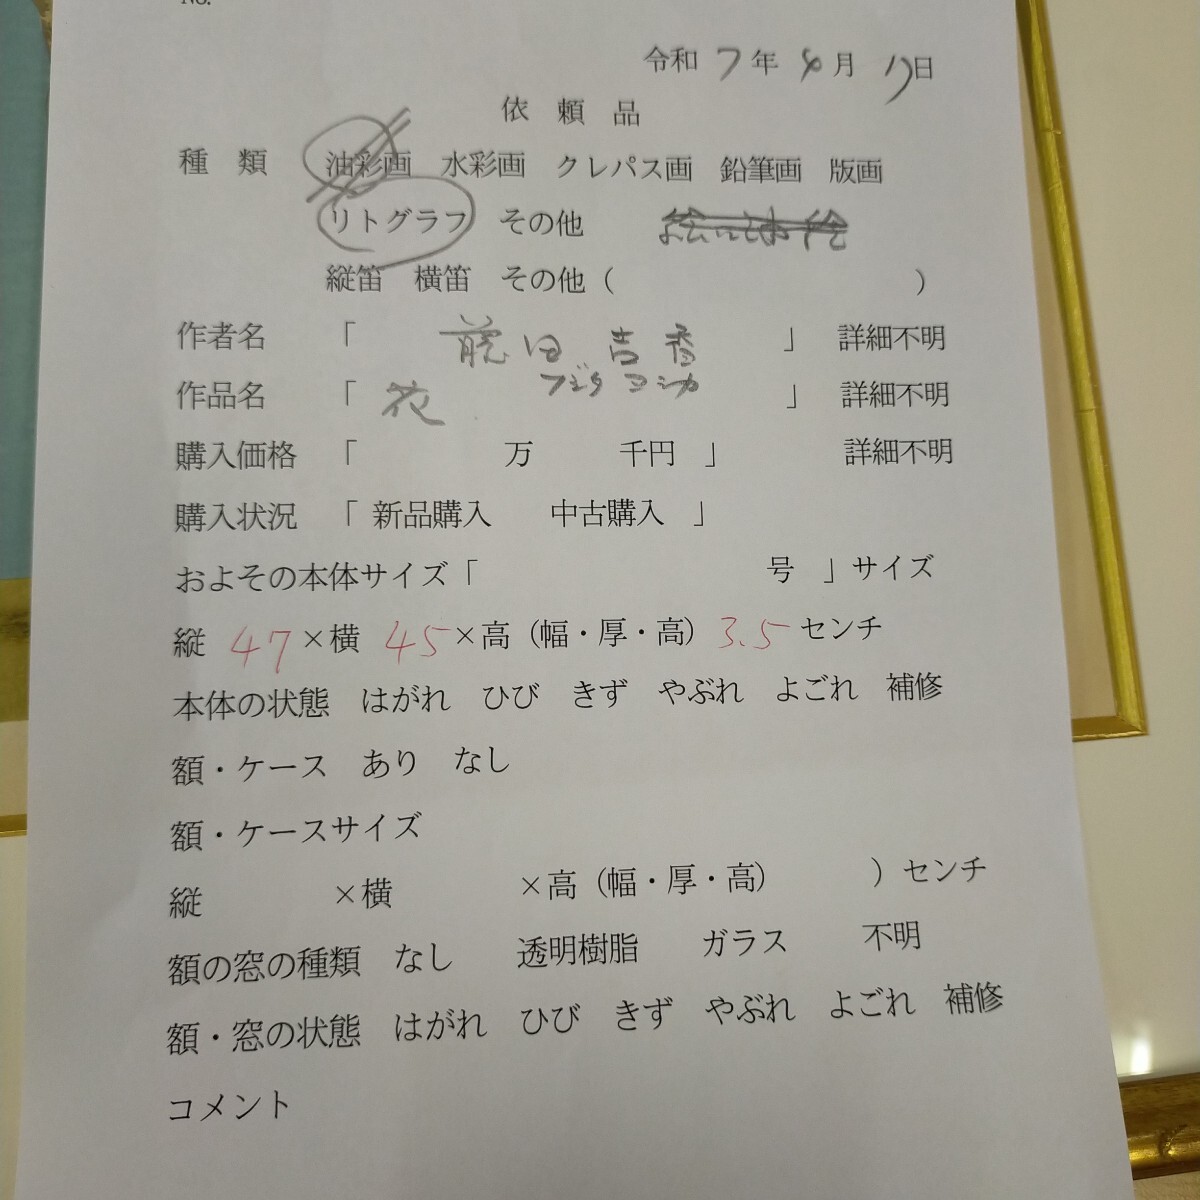 No.
令和 7年 4月 17日
依 頼 品
種 類 油彩画 水彩画 クレパス画 鉛筆画 版画
リトグラフ その他
縦笛 横笛 その他( )
作者名 「 藤田 吉香 」 詳細不明
フジタ ヨシカ
作品名 「 花 」 詳細不明
購入価格 「 万 千円 」 詳細不明
購入状況 「 新品購入 中古購入 」
およその本体サイズ「 号 」サイズ
縦 47 ×横 45 ×高(幅・厚・高) 3.5 センチ
本体の状態 はがれ ひび きず やぶれ よごれ 補修
額・ケース あり なし
額・ケースサイズ
縦 ×横 ×高(幅・厚・高) )センチ
額の窓の種類 なし 透明樹脂 ガラス 不明
額・窓の状態 はがれ ひび きず やぶれ よごれ 補修
コメント